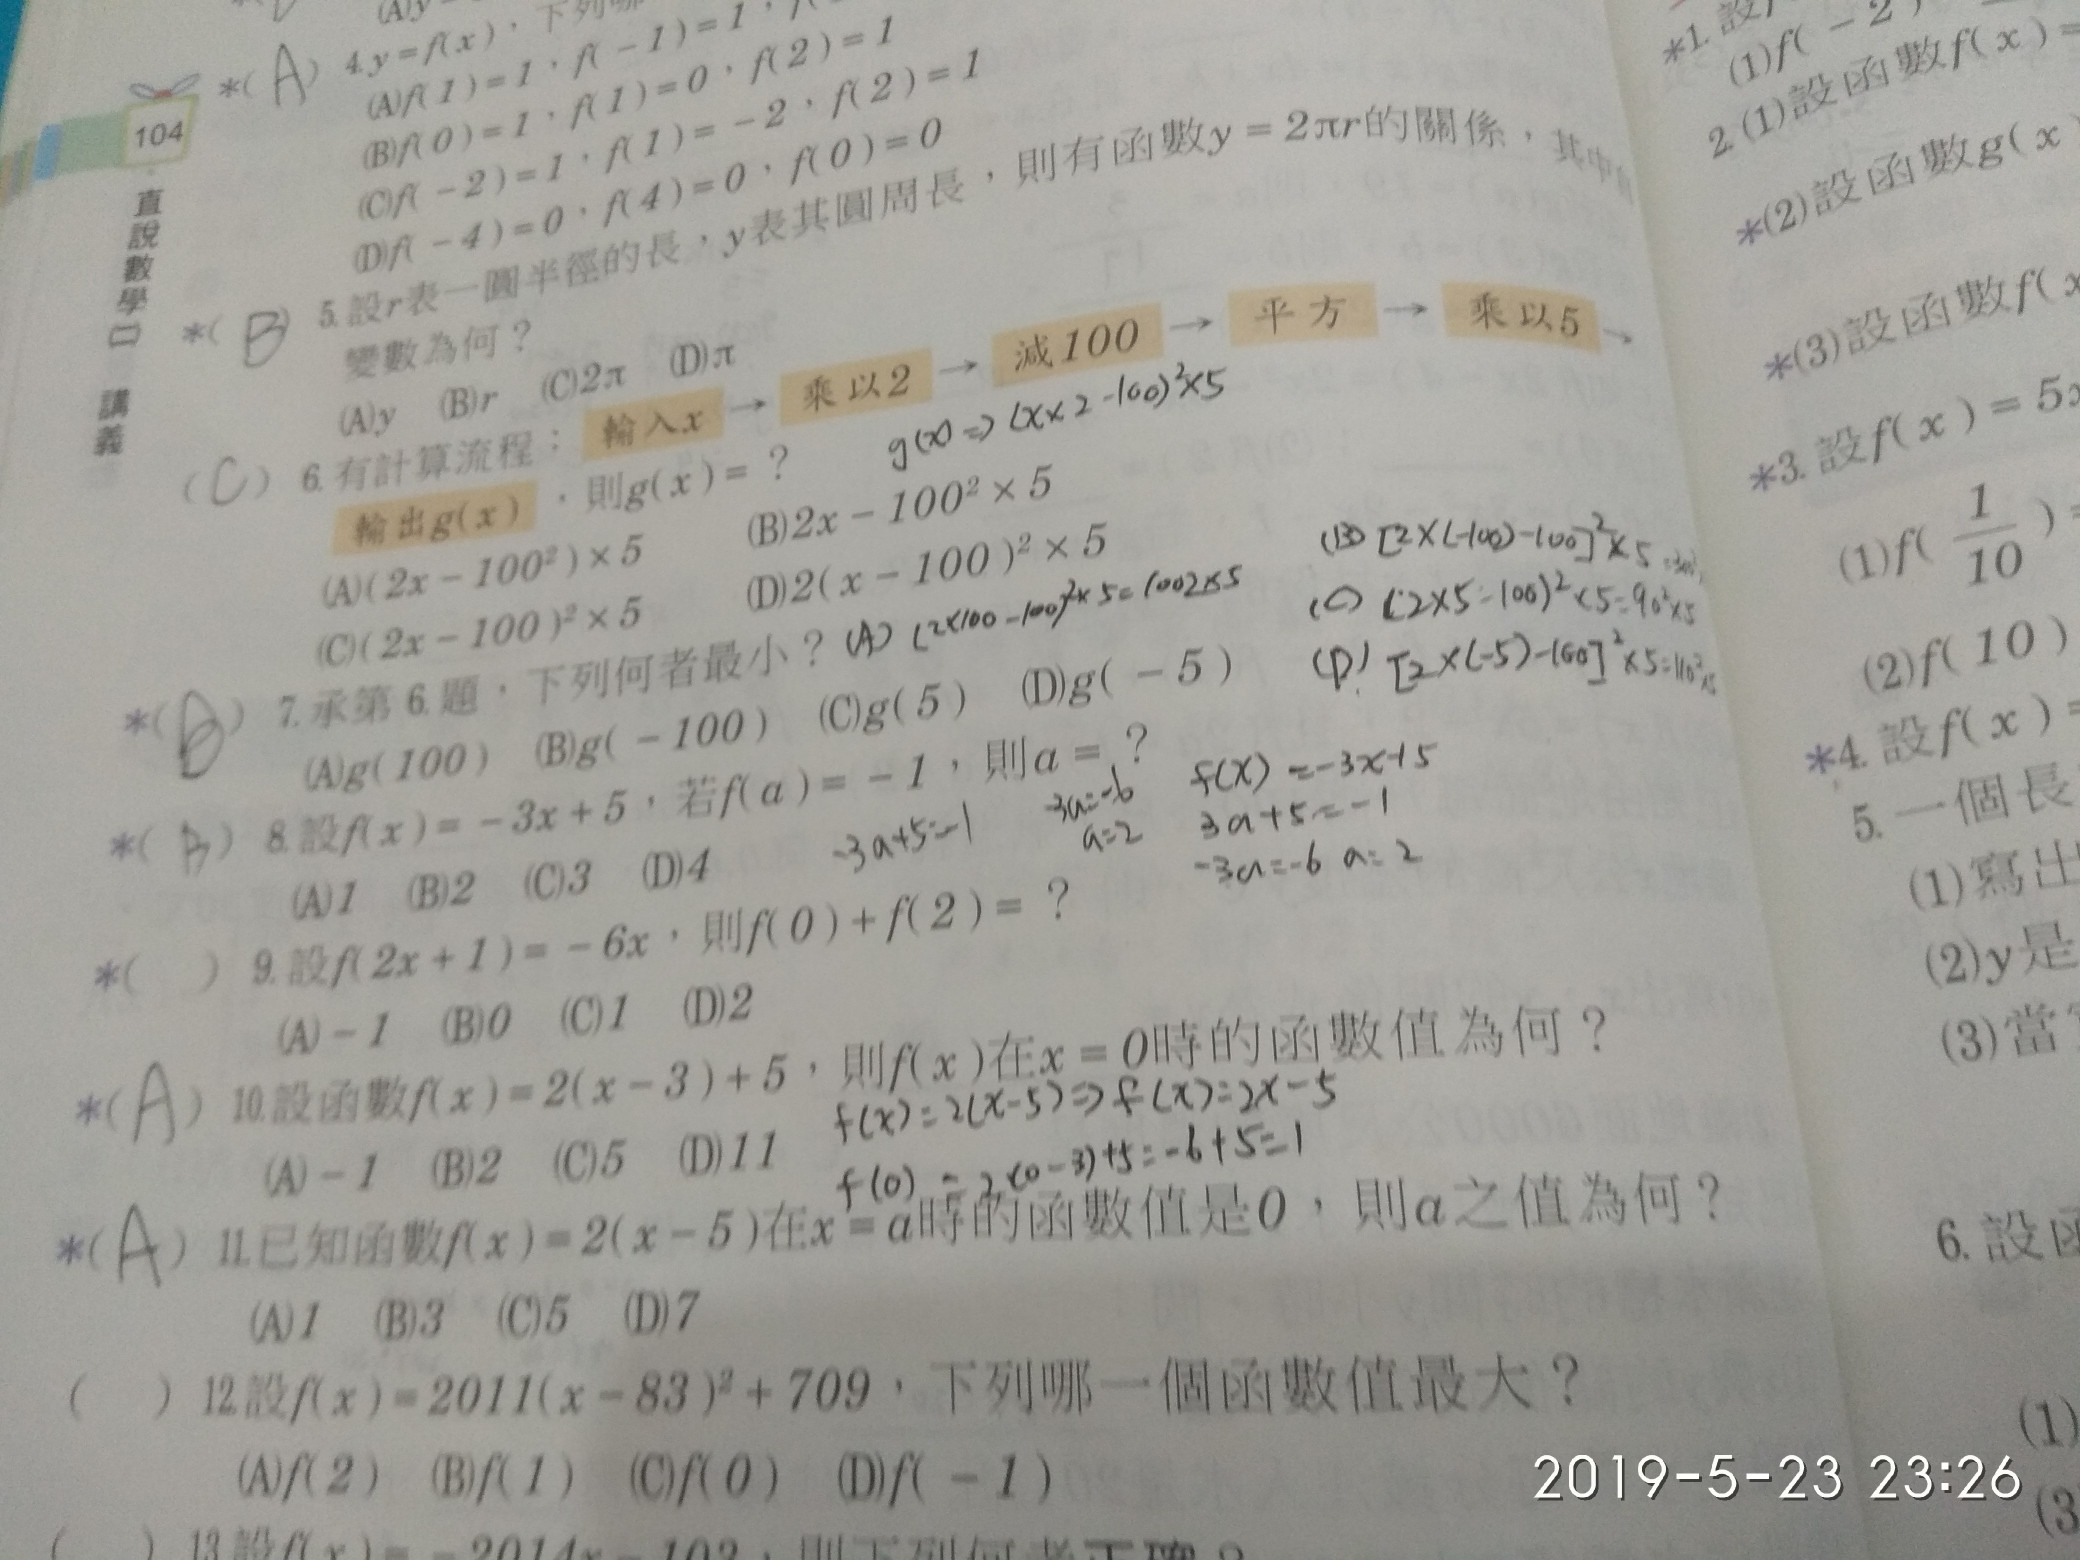 (A)y
*( A ) 4.y=f(x),下列哪
(A)f(1)=1,f(-1)=1,
(B)f(0)=1,f(1)=0,f(2)=1
(C)f(-2)=1,f(1)=-2,f(2)=1
(D)f(-4)=0,f(4)=0,f(0)=0
104
直說數學 講義
*( B ) 5.設r表一圓半徑的長,y表其圓周長,則有函數y=2πr的關係,其中
變數為何?
(A)y (B)r (C)2π (D)π
( C ) 6.有計算流程: 輸入x → 乘以2 → 減100 → 平方 → 乘以5 →
輸出g(x) ,則g(x)=?
g(x)=>(x×2-100)²×5
(A)(2x-100²)×5 (B)2x-100²×5
(C)(2x-100)²×5 (D)2(x-100)²×5
*( ) 7.承第6.題,下列何者最小? (A) (2×100-100)²×5=1002×5
(B) [2×(-100)-100]²×5
(C) (2×5-100)²×5=90²×5
(D) [2×(-5)-100]²×5=110²×5
(A)g(100) (B)g(-100) (C)g(5) (D)g(-5)
*( B ) 8.設f(x)=-3x+5,若f(a)=-1,則a=?
-3a+5=-1
-3a=-6
a=2
f(x)=-3x+5
3a+5=-1
-3a=-6 a=2
(A)1 (B)2 (C)3 (D)4
*( ) 9.設f(2x+1)=-6x,則f(0)+f(2)=?
(A)-1 (B)0 (C)1 (D)2
*( A ) 10.設函數f(x)=2(x-3)+5,則f(x)在x=0時的函數值為何?
f(x)=2(x-5)=>f(x)=2x-5
(A)-1 (B)2 (C)5 (D)11
f(0)=2(0-3)+5=-6+5=1
*( A ) 11.已知函數f(x)=2(x-5)在x=a時的函數值是0,則a之值為何?
(A)1 (B)3 (C)5 (D)7
( ) 12.設f(x)=2011(x-83)²+709,下列哪一個函數值最大?
(A)f(2) (B)f(1) (C)f(0) (D)f(-1)
( ) 13.設f(x)=-2014x-102,則下列何者正確?
*1.設
(1)f(-2)
2.(1)設函數f(x)=
*(2)設函數g(x)
*(3)設函數f(x
*3.設f(x)=5x
(1)f(1/10)=
(2)f(10)
*4.設f(x)=
5.一個長
(1)寫出
(2)y是
(3)當
6.設函
(1)
(3)
2019-5-23 23:26